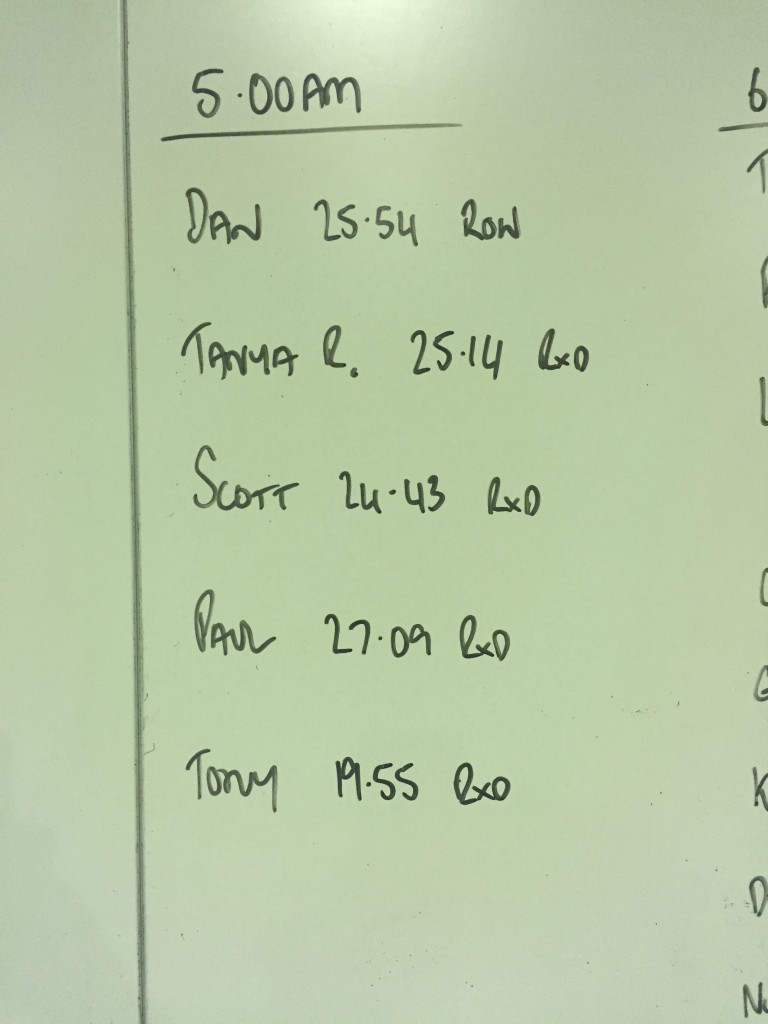 5.00AM
DAN 25.54 ROW
TANYA R. 25.14 RxD
SCOTT 24.43 RxD
PAUL 27.09 RxD
TONY 19.55 RxD
6
T
L
G
K
D